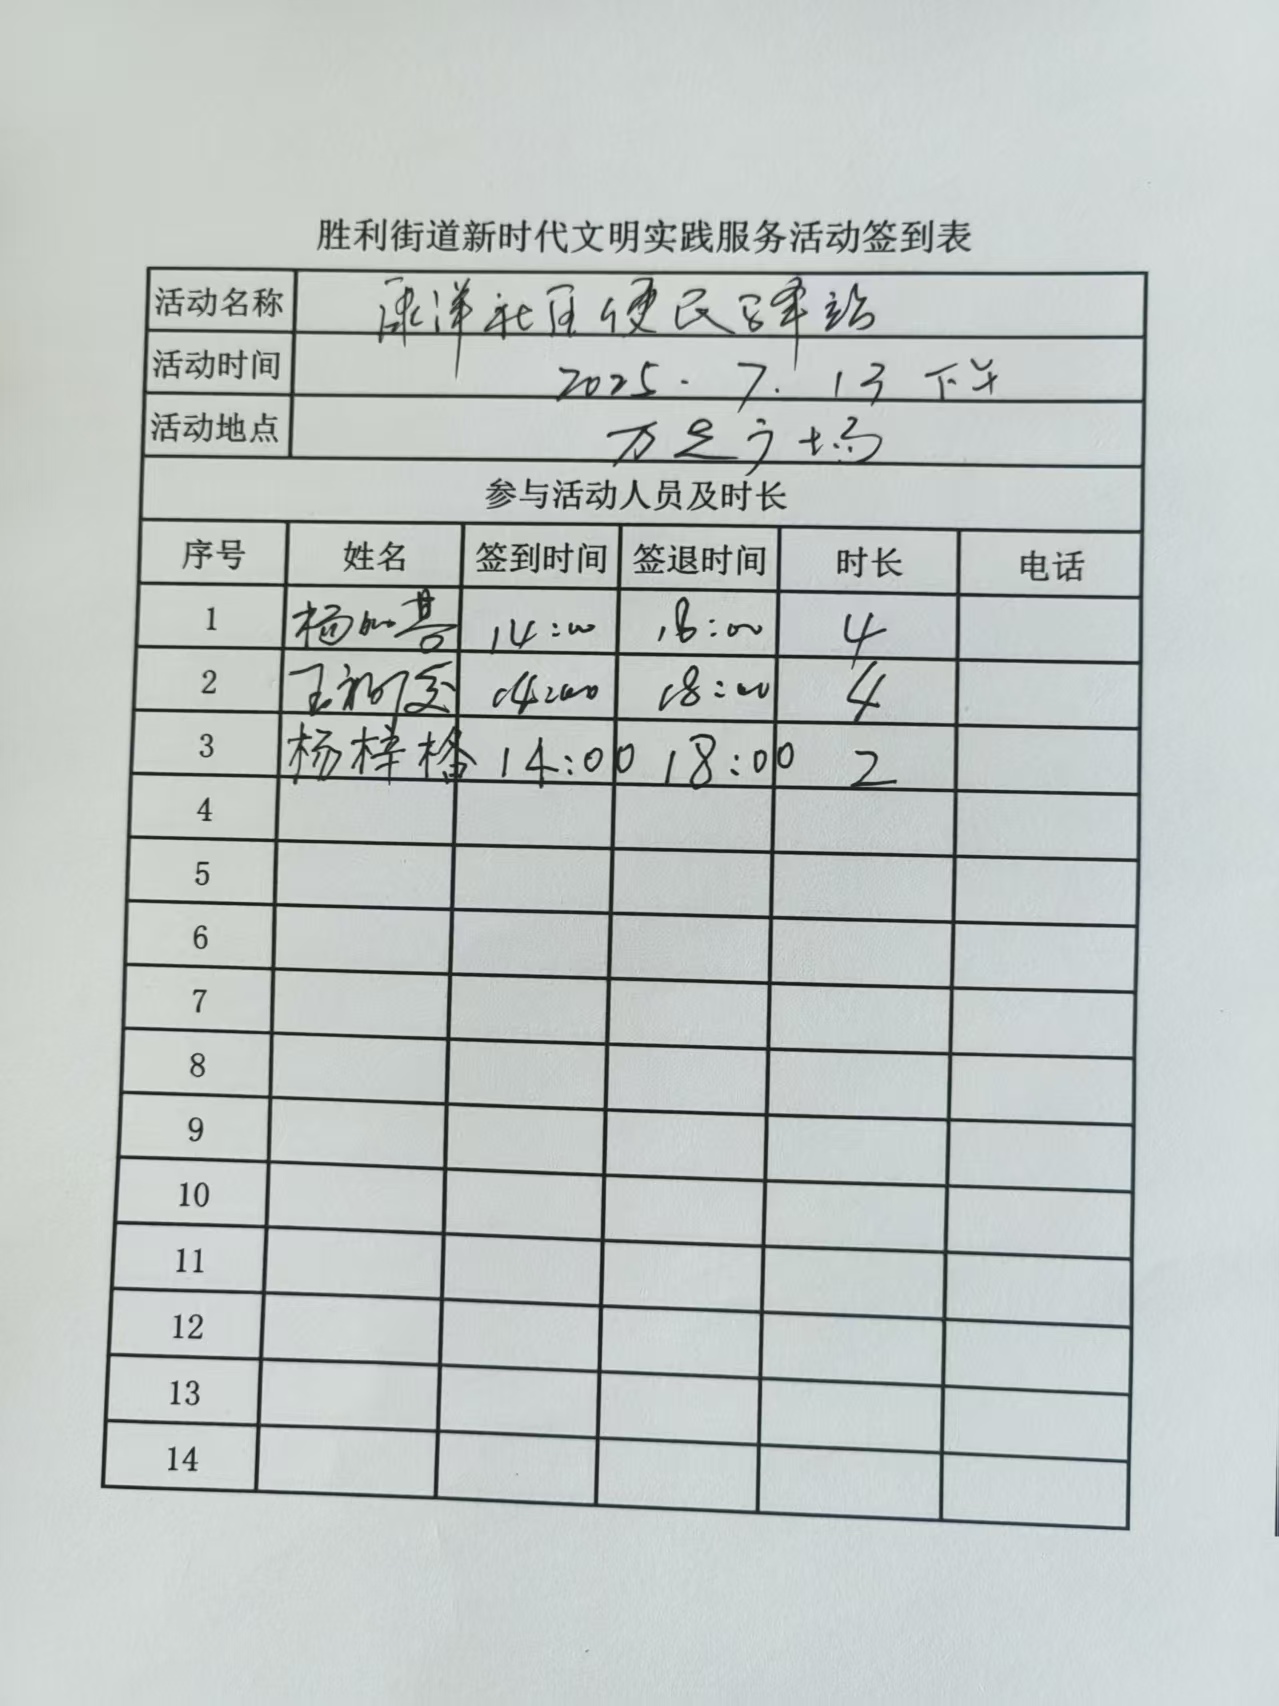 胜利街道新时代文明实践服务活动签到表
活动名称 康洋社区便民驿站
活动时间 2025.7.13 下午
活动地点 万达广场
参与活动人员及时长
序号 姓名 签到时间 签退时间 时长 电话
1 杨 14:00 18:00 4
2 王 14:00 18:00 4
3 杨梓 14:00 18:00 2
4
5
6
7
8
9
10
11
12
13
14